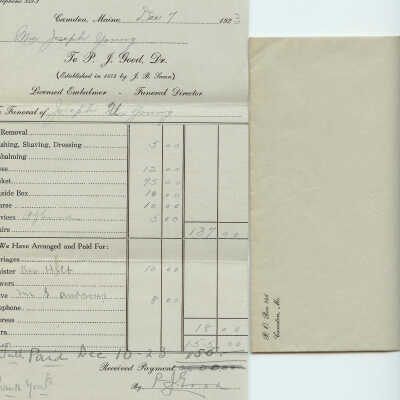 Telephone
Camden, Maine, Dec 7 1923
Mrs Joseph Young
To P. J. Good, Dr.
(Established in 1873 by J. B. Swan)
Licensed Embalmer - Funeral Director
Funeral of Joseph Young
Removal
shing, Shaving, Dressing 5 00
balming
12 00
ket 95 00
side Box 10 00
10 00
vices 5 00
ire 137 00
We Have Arranged and Paid For:
riages
nister Rev Holt 10 00
wers
ve Andrews 8 00
ephone
ress
ra 18 00
155 00
Full Paid Dec 10-23 155
Received Payment,
Thank You
By P J Good
P. O. Box
Camden, Me.